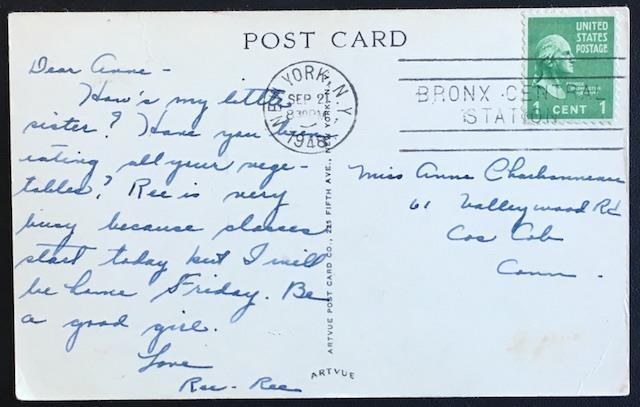 POST CARD
Dear Anne -
How's my little
sister? Have you been
eating all your vege-
tables? Ree is very
busy because classes
start today but I will
be home Friday. Be
a good girl.
Love
Ree-Ree
NEW YORK, N.Y.
SEP 21
830PM
1948
BRONX CENTRAL
STATION
UNITED
STATES
POSTAGE
1 CENT 1
Miss Anne Charbonneau
61 Valleywood Rd
Cos Cob
Conn.
ARTVUE POST CARD CO., 225 FIFTH AVE., NEW YORK, N.Y.
ARTVUE